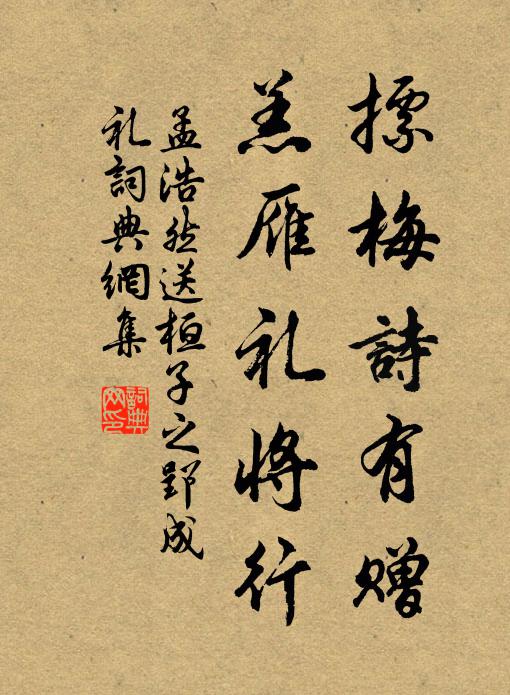 摽梅詩有贈
羔雁礼將行
孟浩然送桓子之郢成
礼詞典網集
詞典网印